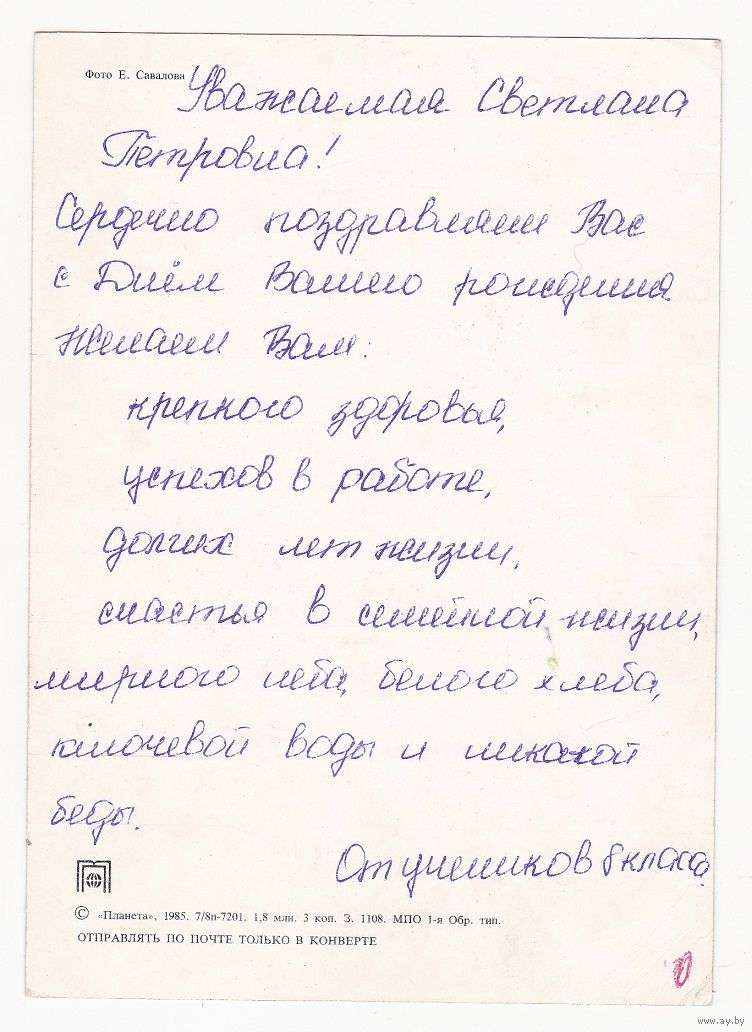 Фото Е. Савалова
Уважаемая Светлана
Петровна!
Сердечно поздравляем Вас
с Днём Вашего рождения
Желаем Вам:
крепкого здоровья,
успехов в работе,
долгих лет жизни,
счастья в семейной жизни,
мирного неба, белого хлеба,
ключевой воды и никакой
беды.
От учеников 8 класса.
© «Планета», 1985. 7/8п-7201. 1,8 млн. 3 коп. З. 1108. МПО 1-я Обр. тип.
ОТПРАВЛЯТЬ ПО ПОЧТЕ ТОЛЬКО В КОНВЕРТЕ
www.ay.by